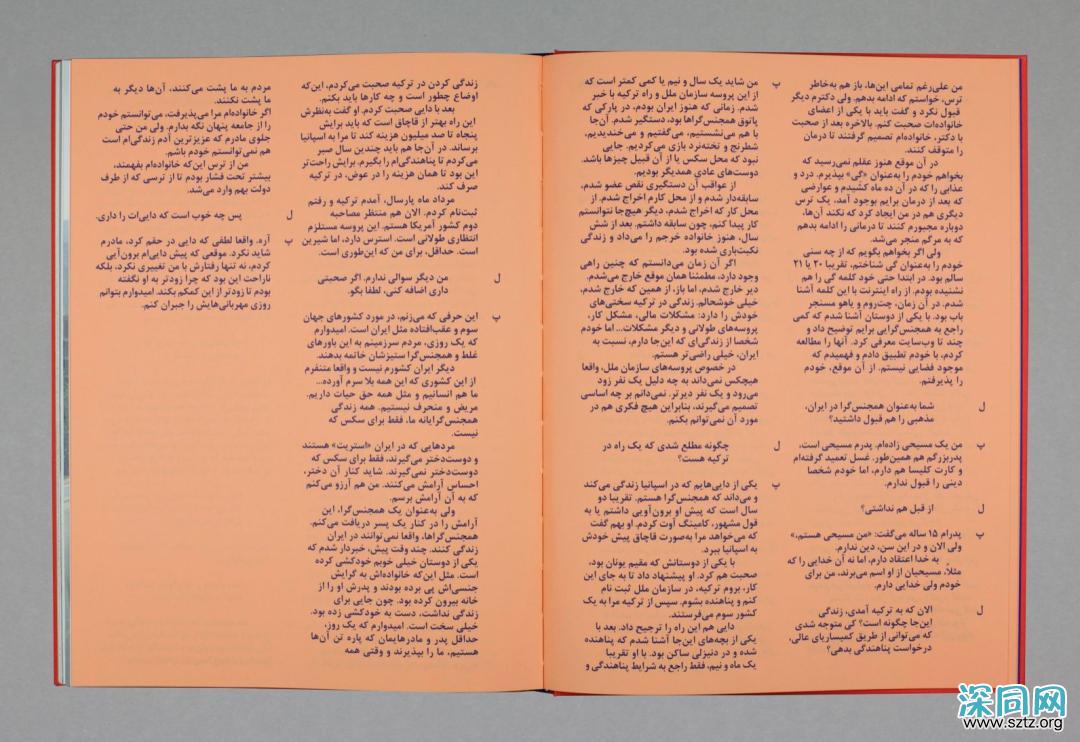 من علی‌رغم تمامی این‌ها، باز هم به‌خاطر
ترس، خواستم که ادامه بدهم. ولی دکترم دیگر
قبول نکرد و گفت باید با یکی از اعضای
خانواده‌ات صحبت کنم. بالاخره بعد از صحبت
با دکتر، خانواده‌ام تصمیم گرفتند تا درمان
را متوقف کنند.
در آن موقع هنوز عقلم نمی‌رسید که
بخواهم خودم را به‌عنوان «گی» بپذیرم. درد و
عذابی را که در آن ده ماه کشیدم و عوارضی
که بعد از درمان برایم بوجود آمد، یک ترس
دیگری هم در من ایجاد کرد که نکند آن‌ها،
دوباره مجبورم کنند تا درمانی را ادامه بدهم
که به مرگم منجر می‌شد.
ولی اگر بخواهم بگویم که از چه سنی
خودم را به‌عنوان گی شناختم، تقریبا ۲۰ یا ۲۱
سالم بود. در ابتدا حتی خود کلمه گی را هم
نشنیده بودم. از راه اینترنت با این کلمه آشنا
شدم. در آن زمان، چت‌روم و یاهو مسنجر
باب بود. با یکی از دوستان آشنا شدم که کمی
راجع به همجنس‌گرایی برایم توضیح داد و
چند تا وب‌سایت معرفی کرد. آنها را مطالعه
کردم، با خودم تطبیق دادم و فهمیدم که
موجود فضایی نیستم. از آن موقع، خودم
را پذیرفتم.
ل شما به‌عنوان همجنس‌گرا در ایران،
مذهبی را هم قبول داشتید؟
پ من یک مسیحی زاده‌ام. پدرم مسیحی است،
پدربزرگم هم همین‌طور. غسل تعمید گرفته‌ام
و کارت کلیسا هم دارم، اما خودم شخصا
دینی را قبول ندارم.
ل از قبل هم نداشتی؟
پ پدرام ۱۵ ساله می‌گفت: «من مسیحی هستم،»
ولی الان و در این سن، دین ندارم.
به خدا اعتقاد دارم، اما نه آن خدایی را که
مثلاً، مسیحیان از او اسم می‌برند، من برای
خودم ولی خدایی دارم.
ل الان که به ترکیه آمدی، زندگی
این‌جا چگونه است؟ کی متوجه شدی
که می‌توانی از طریق کمیساریای عالی،
درخواست پناهندگی بدهی؟
پ من شاید یک سال و نیم یا کمی کمتر است که
از این پروسه سازمان ملل و راه ترکیه با خبر
شدم. زمانی که هنوز ایران بودم، در پارکی که
پاتوق همجنس‌گراها بود، دستگیر شدم. آن‌جا
با هم می‌نشستیم، می‌گفتیم و می‌خندیدیم،
شطرنج و تخته‌نرد بازی می‌کردیم. جایی
نبود که محل سکس یا از آن قبیل چیزها باشد.
دوست‌های عادی همدیگر بودیم.
از عواقب آن دستگیری نقص عضو شدم،
سابقه‌دار شدم و از محل کارم اخراج شدم. از
محل کار که اخراج شدم، دیگر هیچ‌جا نتوانستم
کار پیدا کنم، چون سابقه داشتم. بعد از شش
سال، هنوز خانواده خرجم را می‌داد و زندگی
نکبت‌باری شده بود.
اگر آن زمان می‌دانستم که چنین راهی
وجود دارد، مطمئنا همان موقع خارج می‌شدم.
دیر خارج شدم، اما باز، از همین که خارج شدم،
خیلی خوشحالم. زندگی در ترکیه سختی‌های
خودش را دارد: مشکلات مالی، مشکل کار،
پروسه‌های طولانی و دیگر مشکلات... اما خودم
شخصا از زندگی‌ای که این‌جا دارم، نسبت به
ایران، خیلی راضی‌تر هستم.
در خصوص پروسه‌های سازمان ملل، واقعا
هیچکس نمی‌داند به چه دلیل یک نفر زود
می‌رود و یک نفر دیرتر. نمی‌دانم بر چه اساسی
تصمیم می‌گیرند، بنابراین هیچ فکری هم در
مورد آن نمی‌توانم بکنم.
ل چگونه مطلع شدی که یک راه در
ترکیه هست؟
پ یکی از دایی‌هایم که در اسپانیا زندگی می‌کند
و می‌داند که همجنس‌گرا هستم. تقریبا دو
سال است که پیش او برون‌آویی داشتم یا به
قول مشهور، کامینگ آوت کردم. او بهم گفت
که می‌خواهد مرا به‌صورت قاچاق پیش خودش
به اسپانیا ببرد.
با یکی از دوستانش که مقیم یونان بود،
صحبت هم کرد. او پیشنهاد داد تا به جای این
کار، بروم ترکیه، در سازمان ملل ثبت نام
کنم و پناهنده بشوم. سپس از ترکیه مرا به یک
کشور سوم می‌فرستند.
دایی هم این راه را ترجیح داد. بعد با
یکی از بچه‌های این‌جا آشنا شدم که پناهنده
شده و در دنیزلی ساکن بود. با او تقریبا
یک ماه و نیم، فقط راجع به شرایط پناهندگی و
زندگی کردن در ترکیه صحبت می‌کردم، این‌که
اوضاع چطور است و چه کارها باید بکنم.
بعد با دایی صحبت کردم. او گفت به‌نظرش
این راه بهتر از قاچاق است که باید برایش
پنجاه تا صد میلیون هزینه کند تا مرا به اسپانیا
برساند. در آن‌جا هم باید چندین سال صبر
می‌کردم تا پناهندگی‌ام را بگیرم. برایش راحت‌تر
این بود تا همان هزینه را در عوض، در ترکیه
صرف کند.
مرداد ماه پارسال، آمدم ترکیه و رفتم
ثبت‌نام کردم. الان هم منتظر مصاحبه
دوم کشور آمریکا هستم. این پروسه مستلزم
انتظاری طولانی است. استرس دارد، اما شیرین
است. حداقل، برای من که این‌طوری است.
ل من دیگر سوالی ندارم. اگر صحبتی
داری اضافه کنی، لطفا بگو.
پ این حرفی که می‌زنم، در مورد کشورهای جهان
سوم و عقب‌افتاده مثل ایران است. امیدوارم
که یک روزی، مردم سرزمینم به این باورهای
غلط و همجنس‌گرا ستیزشان خاتمه بدهند.
دیگر ایران کشورم نیست و واقعا متنفرم
از این کشوری که این همه بلا سرم آورده...
ما هم انسانیم و مثل همه حق حیات داریم.
مریض و منحرف نیستیم. همه زندگی
همجنس‌گرایانه ما، فقط برای سکس که
نیست.
مردهایی که در ایران «استریت» هستند
و دوست‌دختر می‌گیرند، فقط برای سکس که
دوست‌دختر نمی‌گیرند. شاید کنار آن دختر،
احساس آرامش می‌کنند. من هم آرزو می‌کنم
که به آن آرامش برسم.
ولی به‌عنوان یک همجنس‌گرا، این
آرامش را در کنار یک پسر دریافت می‌کنم.
همجنس‌گراها، واقعا نمی‌توانند در ایران
زندگی کنند. چند وقت پیش، خبردار شدم که
یکی از دوستان خیلی خوبم خودکشی کرده
است. مثل این‌که خانواده‌اش به گرایش
جنسی‌اش پی برده بودند و پدرش او را از
خانه بیرون کرده بود. چون جایی برای
زندگی نداشت، دست به خودکشی زده بود.
خیلی سخت است. امیدوارم که یک روز،
حداقل پدر و مادرهایمان که پاره تن آن‌ها
هستیم، ما را بپذیرند و وقتی همه
مردم به ما پشت می‌کنند، آن‌ها دیگر به
ما پشت نکنند.
اگر خانواده‌ام مرا می‌پذیرفت، می‌توانستم خودم
را از جامعه پنهان نگه بدارم. ولی من حتی
جلوی مادرم که عزیزترین آدم زندگی‌ام است
هم نمی‌توانستم خودم باشم.
من از ترس این‌که خانواده‌ام بفهمند،
بیشتر تحت فشار بودم تا از ترسی که از طرف
دولت بهم وارد می‌شد.
ل پس چه خوب است که دایی‌ات را داری.
پ آره. واقعا لطفی که دایی در حقم کرد، مادرم
شاید نکرد. موقعی که پیش دایی‌ام برون‌آیی
کردم، نه تنها رفتارش با من تغییری نکرد، بلکه
ناراحت این بود که چرا زودتر به او نگفته
بودم تا زودتر از این کمکم بکند. امیدوارم بتوانم
روزی مهربانی‌هایش را جبران کنم.
深同网
www.sztz.org